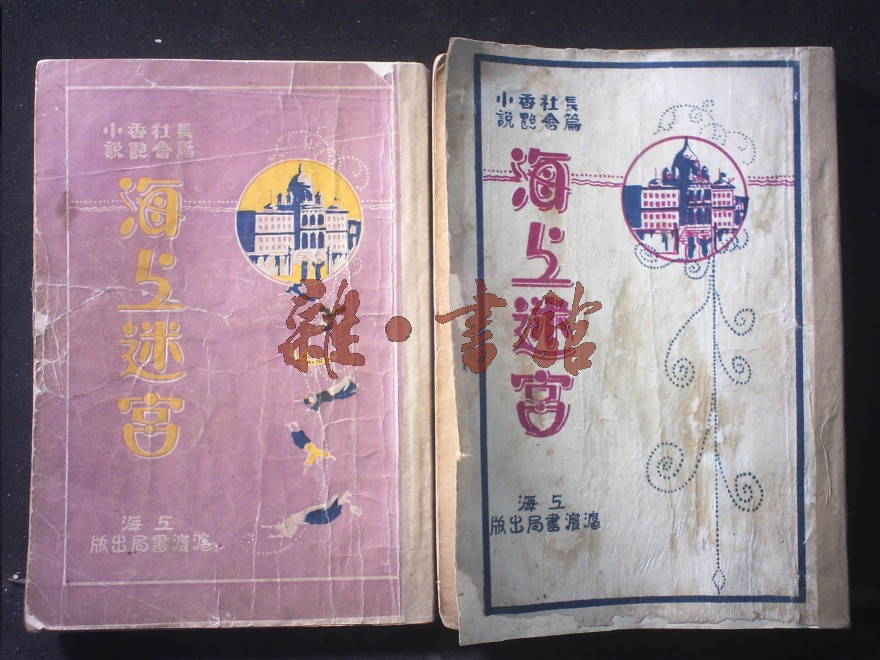 長篇社會香艷小說
海上迷宮
上海
滬濱書局出版
長篇社會香艷小說
海上迷宮
上海
滬濱書局出版
雜·書館